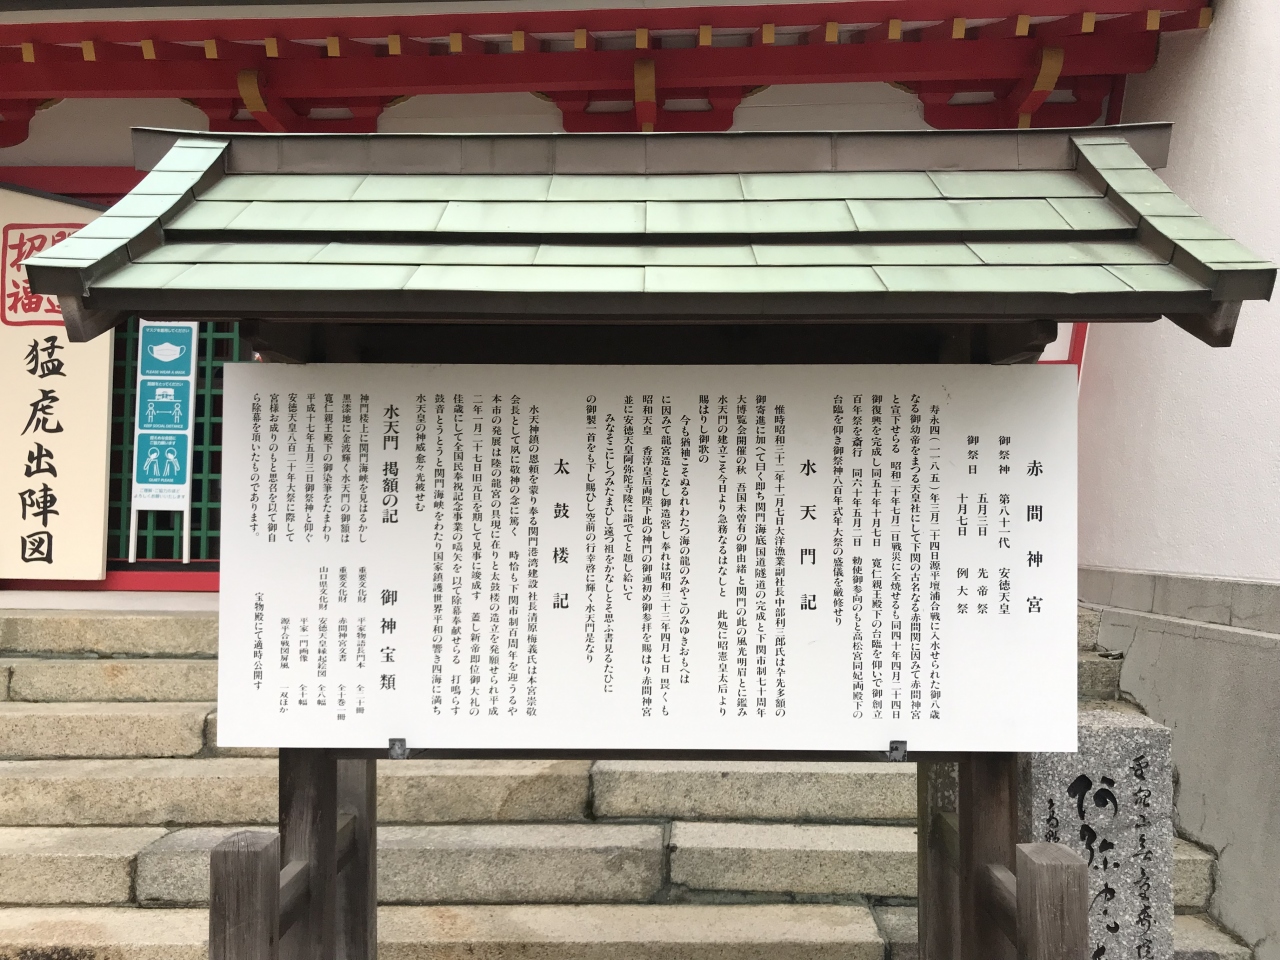 赤間神宮
御祭神　第八十一代　安徳天皇
御祭日　五月三日　先帝祭
十月七日　例大祭
寿永四(一一八五)年三月二十四日源平壇浦合戦に入水せられた御八歳
なる御幼帝をまつる天皇社にして下関の古名なる赤間関に因みて赤間神宮
と宣下せらる　昭和二十年七月二日戦災に全焼せるも同四十年四月二十四日
御復興を完成し同五十年十月七日　寛仁親王殿下の台臨を仰いで御創立
百年祭を斎行　同六十年五月二日　勅使御参向のもと高松宮同妃両殿下の
台臨を仰き御祭神八百年式年大祭の盛儀を厳修せり
水天門記
惟時昭和三十二年十一月七日大洋漁業副社長中部利三郎氏は夲先多額の
御寄進に加へて曰く即ち関門海底国道隧道の完成と下関市制七十周年
大博覧会開催の秋　吾国未曽有の御由緒と関門の此の風光明眉とに鑑み
水天門の建立こそ今日より急務なるはなしと　此処に昭憲皇太后より
賜はりし御歌の
今も猶袖こそぬるれわたつ海の龍のみやこのみゆきおもへは
に因みて龍宮造となし御造営し奉れは昭和三十三年四月七日　畏くも
昭和天皇　香淳皇后両陛下此の神門の御通初め御参拝を賜はり赤間神宮
並に安徳天皇阿弥陀寺陵に詣でてと題し給いて
みなそこにしつみたまひし遠つ祖をかなしとそ思ふ書見るたひに
の御製一首をも下し賜ひし空前の行幸啓に輝く水天門是なり
太鼓楼記
水天神鎮の恩頼を蒙り奉る関門港湾建設社長清原梅義氏は本宮崇敬
会長として夙に敬神の念に篤く　時恰も下関市制百周年を迎うるや
本市の発展は陸の龍宮の具現に在りと太鼓楼の造立を発願せられ平成
二年一月二十七日旧元旦を期して見事に竣成す　蓋し新帝即位御大礼の
佳歳にして全国民奉祝記念事業の嚆矢を以て除幕奉献せらる　打鳴らす
鼓音とうとうと関門海峡をわたり国家鎮護世界平和の響き四海に満ち
水天皇の神威愈々光被せむ
水天門　掲額の記
神門楼上に関門海峡を見はるかし
黒漆地に金波輝く水天門の御額は
寛仁親王殿下の御染筆をたまわり
平成十七年五月三日御祭神と仰ぐ
安徳天皇八百二十年大祭に際して
宮様お成りのもと思召を以て御自
ら除幕を頂いたものであります。
御神宝類
重要文化財　平家物語長門本　全二十冊
重要文化財　赤間神宮文書　全十巻一冊
山口県文化財　安徳天皇縁起絵図　全八幅
平家一門画像　全十幅
源平合戦図屏風　一双ほか
宝物殿にて適時公開す
猛虎出陣図
招福
PLEASE WEAR A MASK
KEEP SOCIAL DISTANCE
QUIET PLEASE